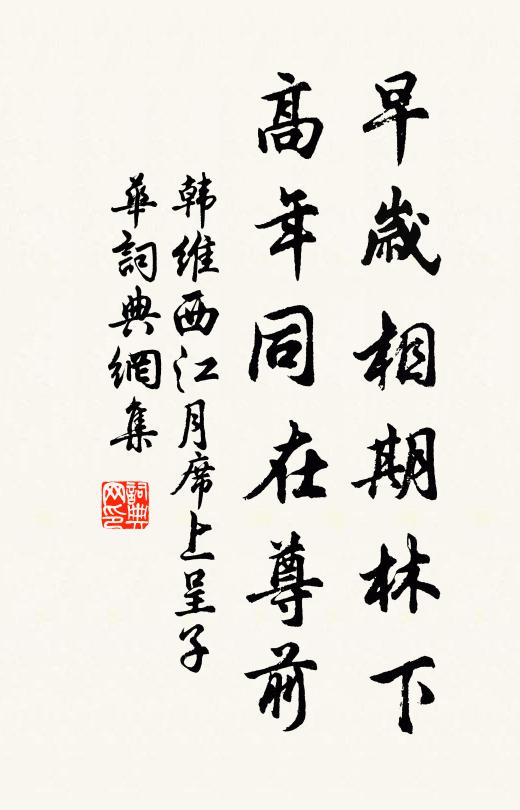 早歲相期林下
高年同在尊前
韩維西江月席上呈子
華詞典網集
詞典
网印